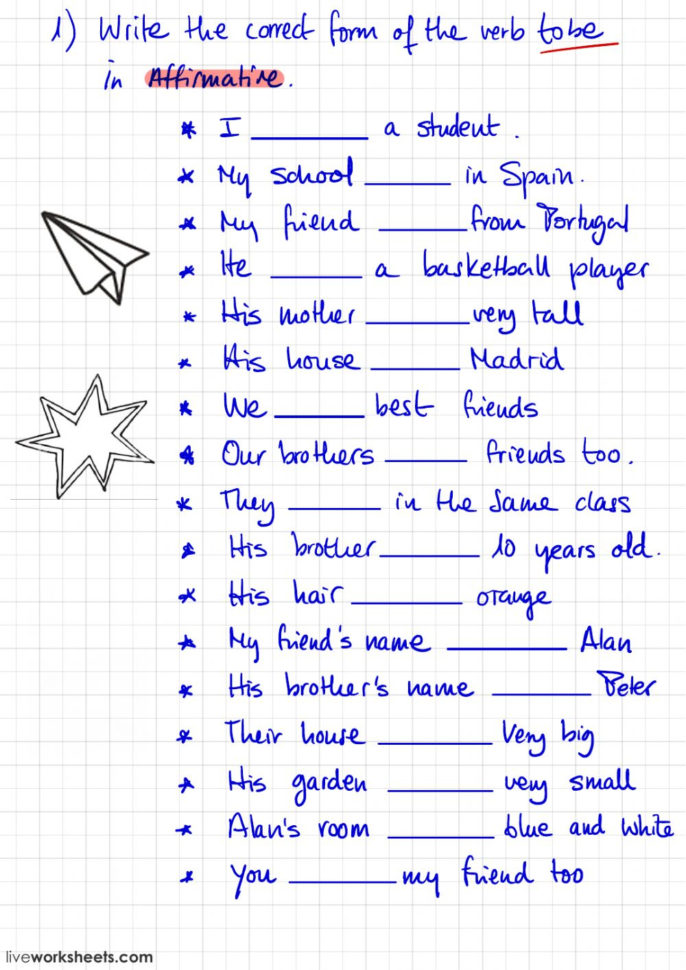 1) Write the correct form of the verb to be
in Affirmative.
* I ________ a student.
* My school ________ in Spain.
* My friend ________ from Portugal
* He ________ a basketball player
* His mother ________ very tall
* His house ________ Madrid
* We ________ best friends
* Our brothers ________ friends too.
* They ________ in the same class
* His brother ________ 10 years old.
* His hair ________ orange
* My friend's name ________ Alan
* His brother's name ________ Peter
* Their house ________ Very big
* His garden ________ very small
* Alan's room ________ blue and white
* You ________ my friend too
liveworksheets.com